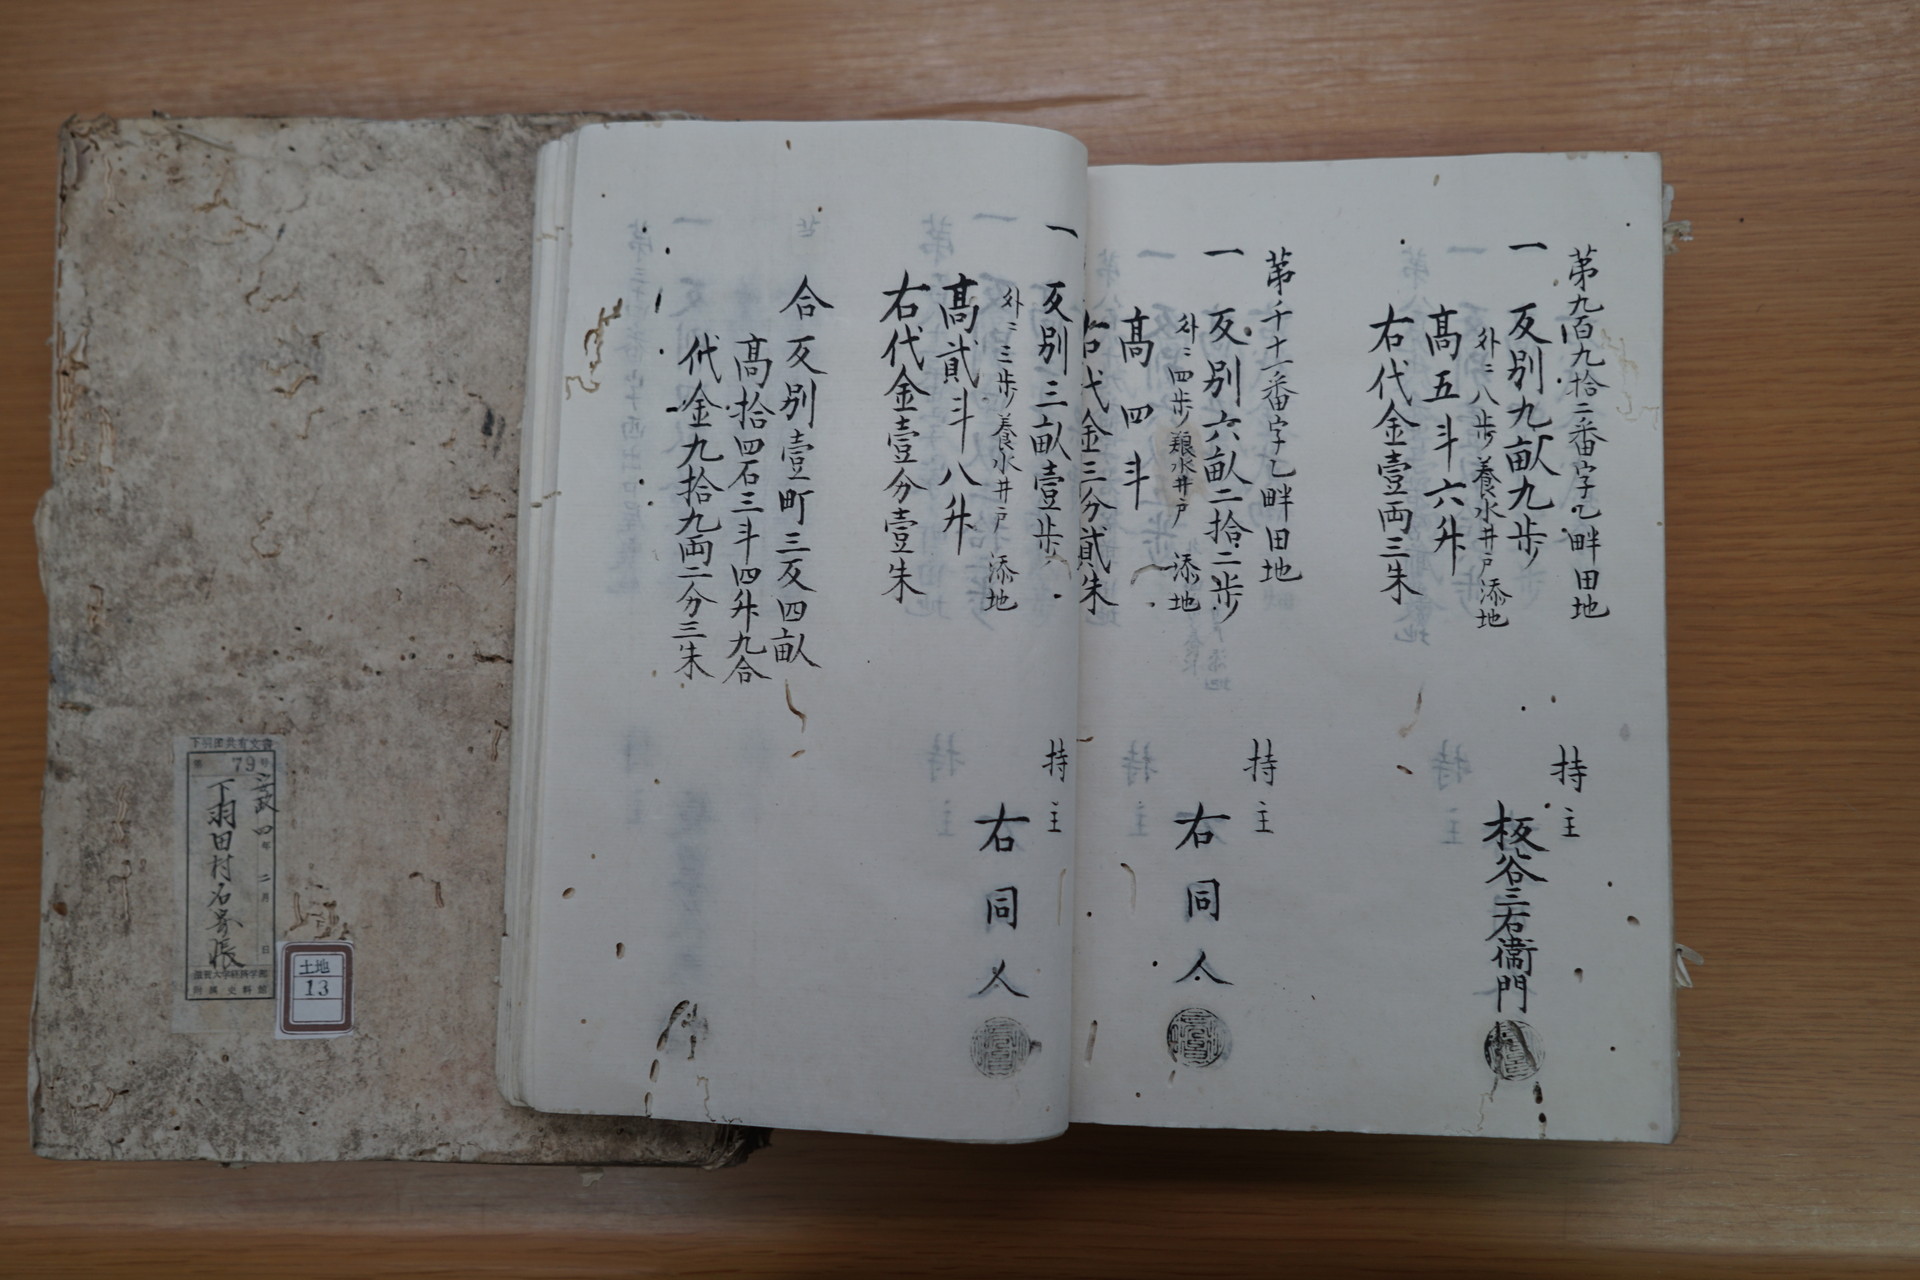 第九百九拾二番字乙畔田地
一 反別九畝九歩
外ニ八歩 養水井戸添地
高五斗六升
右代金壹両三朱
持主
板谷三右衛門
第千十一番字乙畔田地
一 反別六畝二拾二歩
外ニ四歩 養水井戸 添地
高四斗
右代金三分貳朱
持主
右同人
一 反別三畝壹歩
外ニ三歩 養水井戸 添地
高貳斗八升
右代金壹分壹朱
持主
右同人
合反別壹町三反四畝
高拾四石三斗四升九合
代金九拾九両二分三朱
下羽田共有文書
79
安政四年二月 日
下羽田村名寄帳
滋賀大学経済学部
附属史料館
土地
13